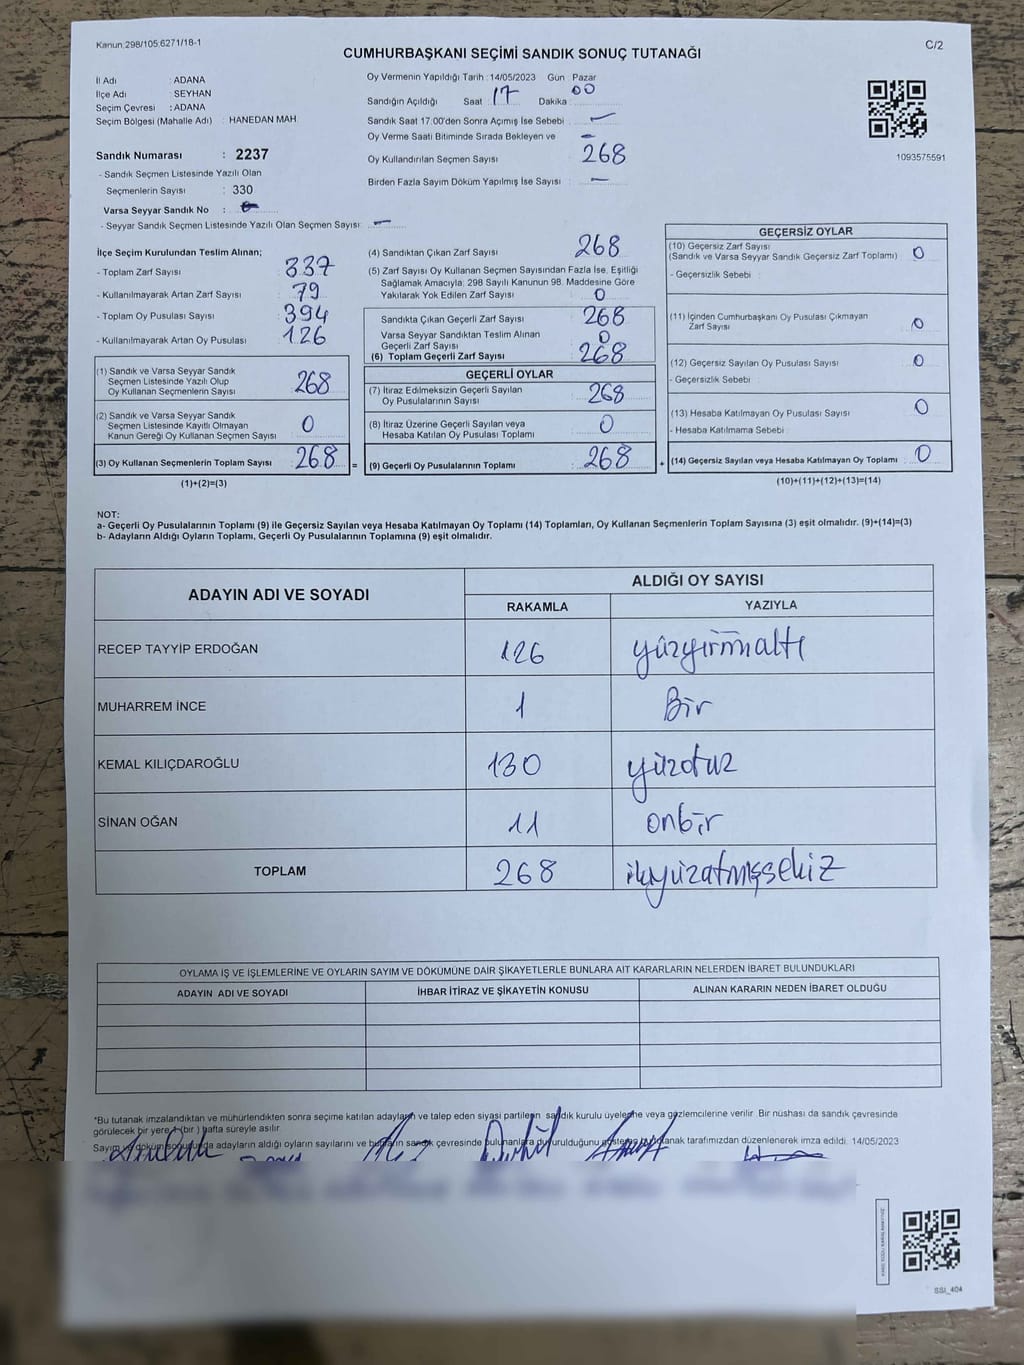 Kanun:298/105;6271/18-1
C/2
CUMHURBAŞKANI SEÇİMİ SANDIK SONUÇ TUTANAĞI
İl Adı : ADANA
İlçe Adı : SEYHAN
Seçim Çevresi : ADANA
Seçim Bölgesi (Mahalle Adı) : HANEDAN MAH.
Oy Vermenin Yapıldığı Tarih : 14/05/2023 Gün : Pazar
Sandığın Açıldığı Saat 17 Dakika : 00
Sandık Saat 17:00'den Sonra Açımış İse Sebebi : -
Oy Verme Saati Bitiminde Sırada Bekleyen ve -
Oy Kullandırılan Seçmen Sayısı 268
Birden Fazla Sayım Döküm Yapılmış İse Sayısı : -
1093575591
Sandık Numarası : 2237
- Sandık Seçmen Listesinde Yazılı Olan
Seçmenlerin Sayısı : 330
Varsa Seyyar Sandık No :
- Seyyar Sandık Seçmen Listesinde Yazılı Olan Seçmen Sayısı: -
İlçe Seçim Kurulundan Teslim Alınan;
- Toplam Zarf Sayısı : 337
- Kullanılmayarak Artan Zarf Sayısı : 79
- Toplam Oy Pusulası Sayısı : 394
- Kullanılmayarak Artan Oy Pusulası : 126
(1) Sandık ve Varsa Seyyar Sandık
Seçmen Listesinde Yazılı Olup
Oy Kullanan Seçmenlerin Sayısı : 268
(2) Sandık ve Varsa Seyyar Sandık
Seçmen Listesinde Kayıtlı Olmayan
Kanun Gereği Oy Kullanan Seçmen Sayısı : 0
(3) Oy Kullanan Seçmenlerin Toplam Sayısı : 268 =
(1)+(2)=(3)
(4) Sandıktan Çıkan Zarf Sayısı : 268
(5) Zarf Sayısı Oy Kullanan Seçmen Sayısından Fazla İse, Eşitliği
Sağlamak Amacıyla, 298 Sayılı Kanunun 98. Maddesine Göre
Yakılarak Yok Edilen Zarf Sayısı : 0
Sandıkta Çıkan Geçerli Zarf Sayısı : 268
Varsa Seyyar Sandıktan Teslim Alınan
Geçerli Zarf Sayısı : 0
(6) Toplam Geçerli Zarf Sayısı : 268
GEÇERLİ OYLAR
(7) İtiraz Edilmeksizin Geçerli Sayılan
Oy Pusulalarının Sayısı : 268
(8) İtiraz Üzerine Geçerli Sayılan veya
Hesaba Katılan Oy Pusulası Toplamı : 0
(9) Geçerli Oy Pusulalarının Toplamı : 268 +
GEÇERSİZ OYLAR
(10) Geçersiz Zarf Sayısı
(Sandık ve Varsa Seyyar Sandık Geçersiz Zarf Toplamı) : 0
- Geçersizlik Sebebi :
(11) İçinden Cumhurbaşkanı Oy Pusulası Çıkmayan
Zarf Sayısı : 0
(12) Geçersiz Sayılan Oy Pusulası Sayısı : 0
- Geçersizlik Sebebi :
(13) Hesaba Katılmayan Oy Pusulası Sayısı : 0
- Hesaba Katılmama Sebebi :
(14) Geçersiz Sayılan veya Hesaba Katılmayan Oy Toplamı : 0
(10)+(11)+(12)+(13)=(14)
NOT:
a- Geçerli Oy Pusulalarının Toplamı (9) ile Geçersiz Sayılan veya Hesaba Katılmayan Oy Toplamı (14) Toplamları, Oy Kullanan Seçmenlerin Toplam Sayısına (3) eşit olmalıdır. (9)+(14)=(3)
b- Adayların Aldığı Oyların Toplamı, Geçerli Oy Pusulalarının Toplamına (9) eşit olmalıdır.
ADAYIN ADI VE SOYADI ALDIĞI OY SAYISI
RAKAMLA YAZIYLA
RECEP TAYYİP ERDOĞAN 126 yüzyirmialtı
MUHARREM İNCE 1 Bir
KEMAL KILIÇDAROĞLU 130 yüzotuz
SİNAN OĞAN 11 onbir
TOPLAM 268 ikiyüzatmışsekiz
OYLAMA İŞ VE İŞLEMLERİNE VE OYLARIN SAYIM VE DÖKÜMÜNE DAİR ŞİKAYETLERLE BUNLARA AİT KARARLARIN NELERDEN İBARET BULUNDUKLARI
ADAYIN ADI VE SOYADI İHBAR İTİRAZ VE ŞİKAYETİN KONUSU ALINAN KARARIN NEDEN İBARET OLDUĞU
*Bu tutanak imzalandıktan ve mühürlendikten sonra seçime katılan adayların ve talep eden siyasi partilerin sandık kurulu üyelerine veya gözlemcilerine verilir. Bir nüshası da sandık çevresinde
görülecek bir yere 1 (bir) hafta süreyle asılır.
Sayım ve döküm sonunda adayların aldığı oyların sayılarını ve bunların sandık çevresinde bulunanlara duyurulduğunu gösteren bu tutanak tarafımızdan düzenlenerek imza edildi. 14/05/2023
SSI_404